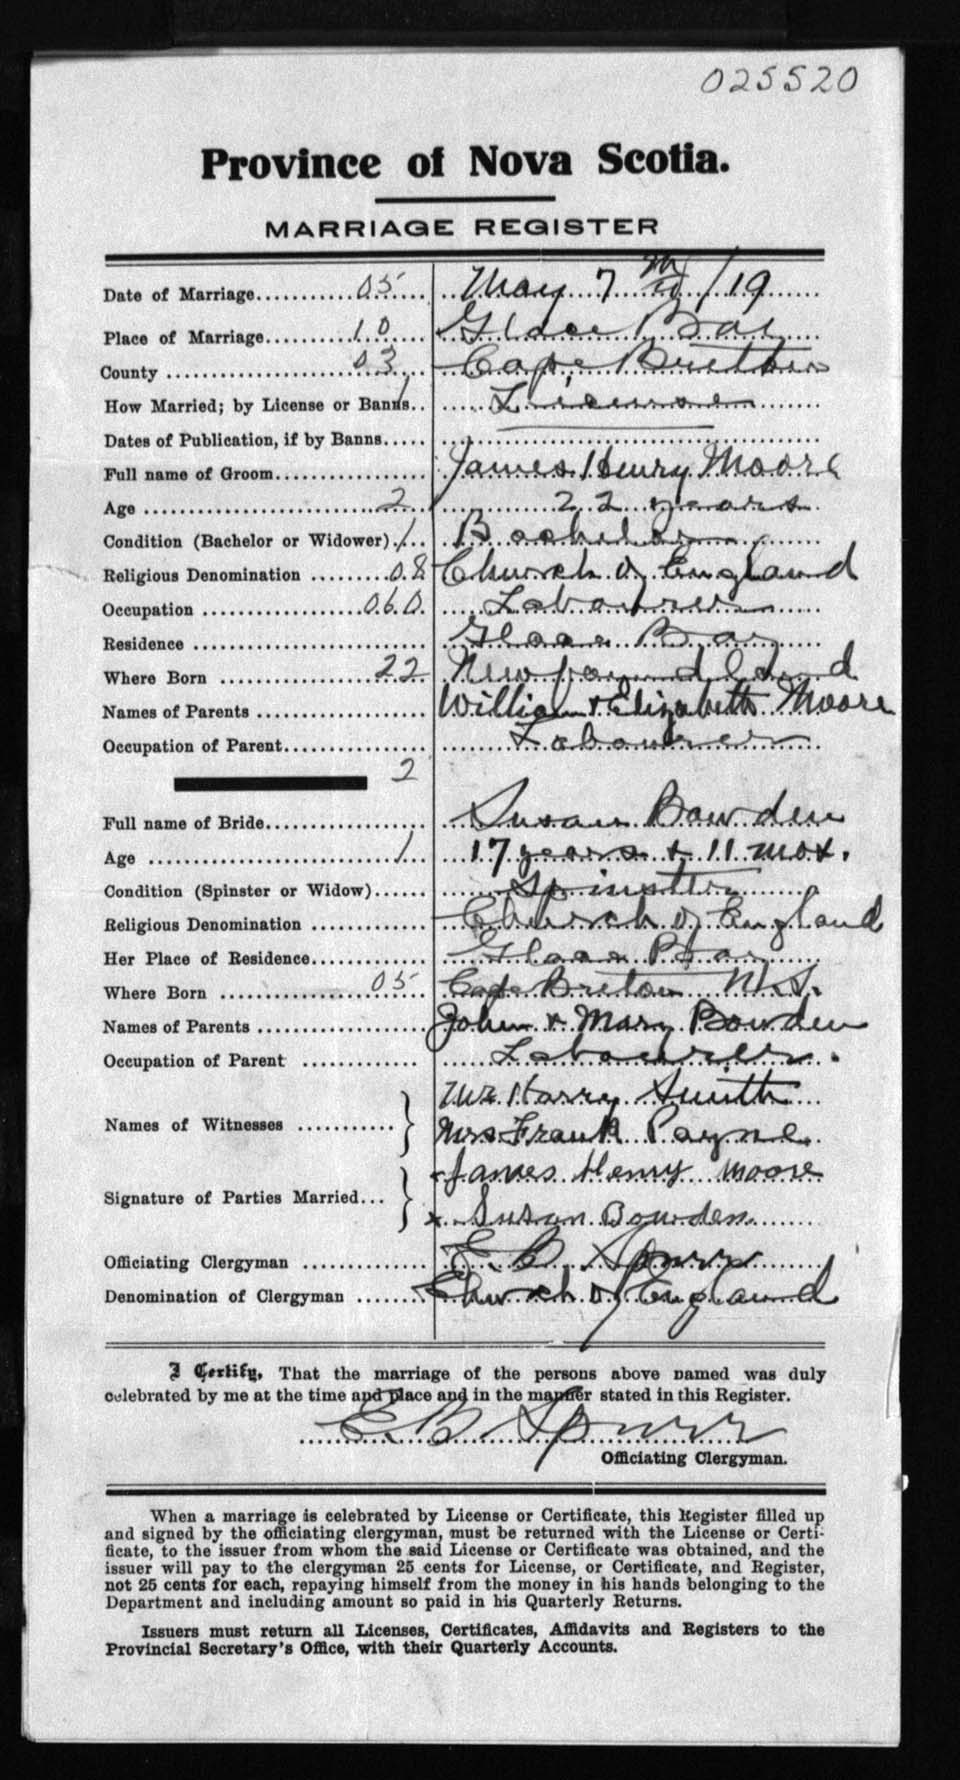 025520
Province of Nova Scotia.
MARRIAGE REGISTER
Date of Marriage........... 05 ..... May 7th /19
Place of Marriage......... 10 ..... Glace Bay
County .................. 03 ..... Cape Bretton
How Married; by License or Banns.. 1 License
Dates of Publication, if by Banns.....
Full name of Groom................ James Henry Moore
Age ........................ 2 ... 22 years
Condition (Bachelor or Widower). 1 .. Bachelor
Religious Denomination ......... 08 Church of England
Occupation ................ 060. Labourer
Residence ........................ Glace Bay
Where Born ................. 22 Newfoundland
Names of Parents .................. William + Elizabeth Moore
Occupation of Parent............... Labourer
2
Full name of Bride................. Susan Bowden
Age .......................... 1 . 17 years + 11 mos.
Condition (Spinster or Widow)...... Spinster
Religious Denomination ............ Church of England
Her Place of Residence............. Glace Bay
Where Born ............... 05 .. Cape Breton N.S.
Names of Parents .................. John + Mary Bowden
Occupation of Parent ............. Labourer.
Mr Harry Smith
Names of Witnesses ...........
Mrs Frank Payne.
x James Henry Moore
Signature of Parties Married...
x Susan Bowden
Officiating Clergyman ............. E. B. Spurr
Denomination of Clergyman ........ Church of England
I Certify, That the marriage of the persons above named was duly
celebrated by me at the time and place and in the manner stated in this Register.
E. B. Spurr
Officiating Clergyman.
When a marriage is celebrated by License or Certificate, this Register filled up
and signed by the officiating clergyman, must be returned with the License or Certi-
ficate, to the issuer from whom the said License or Certificate was obtained, and the
issuer will pay to the clergyman 25 cents for License, or Certificate, and Register,
not 25 cents for each, repaying himself from the money in his hands belonging to the
Department and including amount so paid in his Quarterly Returns.
Issuers must return all Licenses, Certificates, Affidavits and Registers to the
Provincial Secretary's Office, with their Quarterly Accounts.